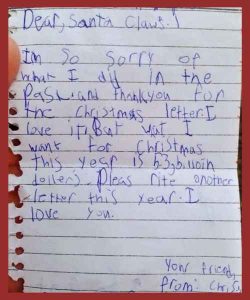 Dear, Santa Claws.!
I'm so sorry of
what I did in the
Past and thankyou for
the christmas letter.I
love it.But wat I
want for Christmas
this year is
doilers. Pleas rite another
letter this year. I
love you.
Your friend,
from: